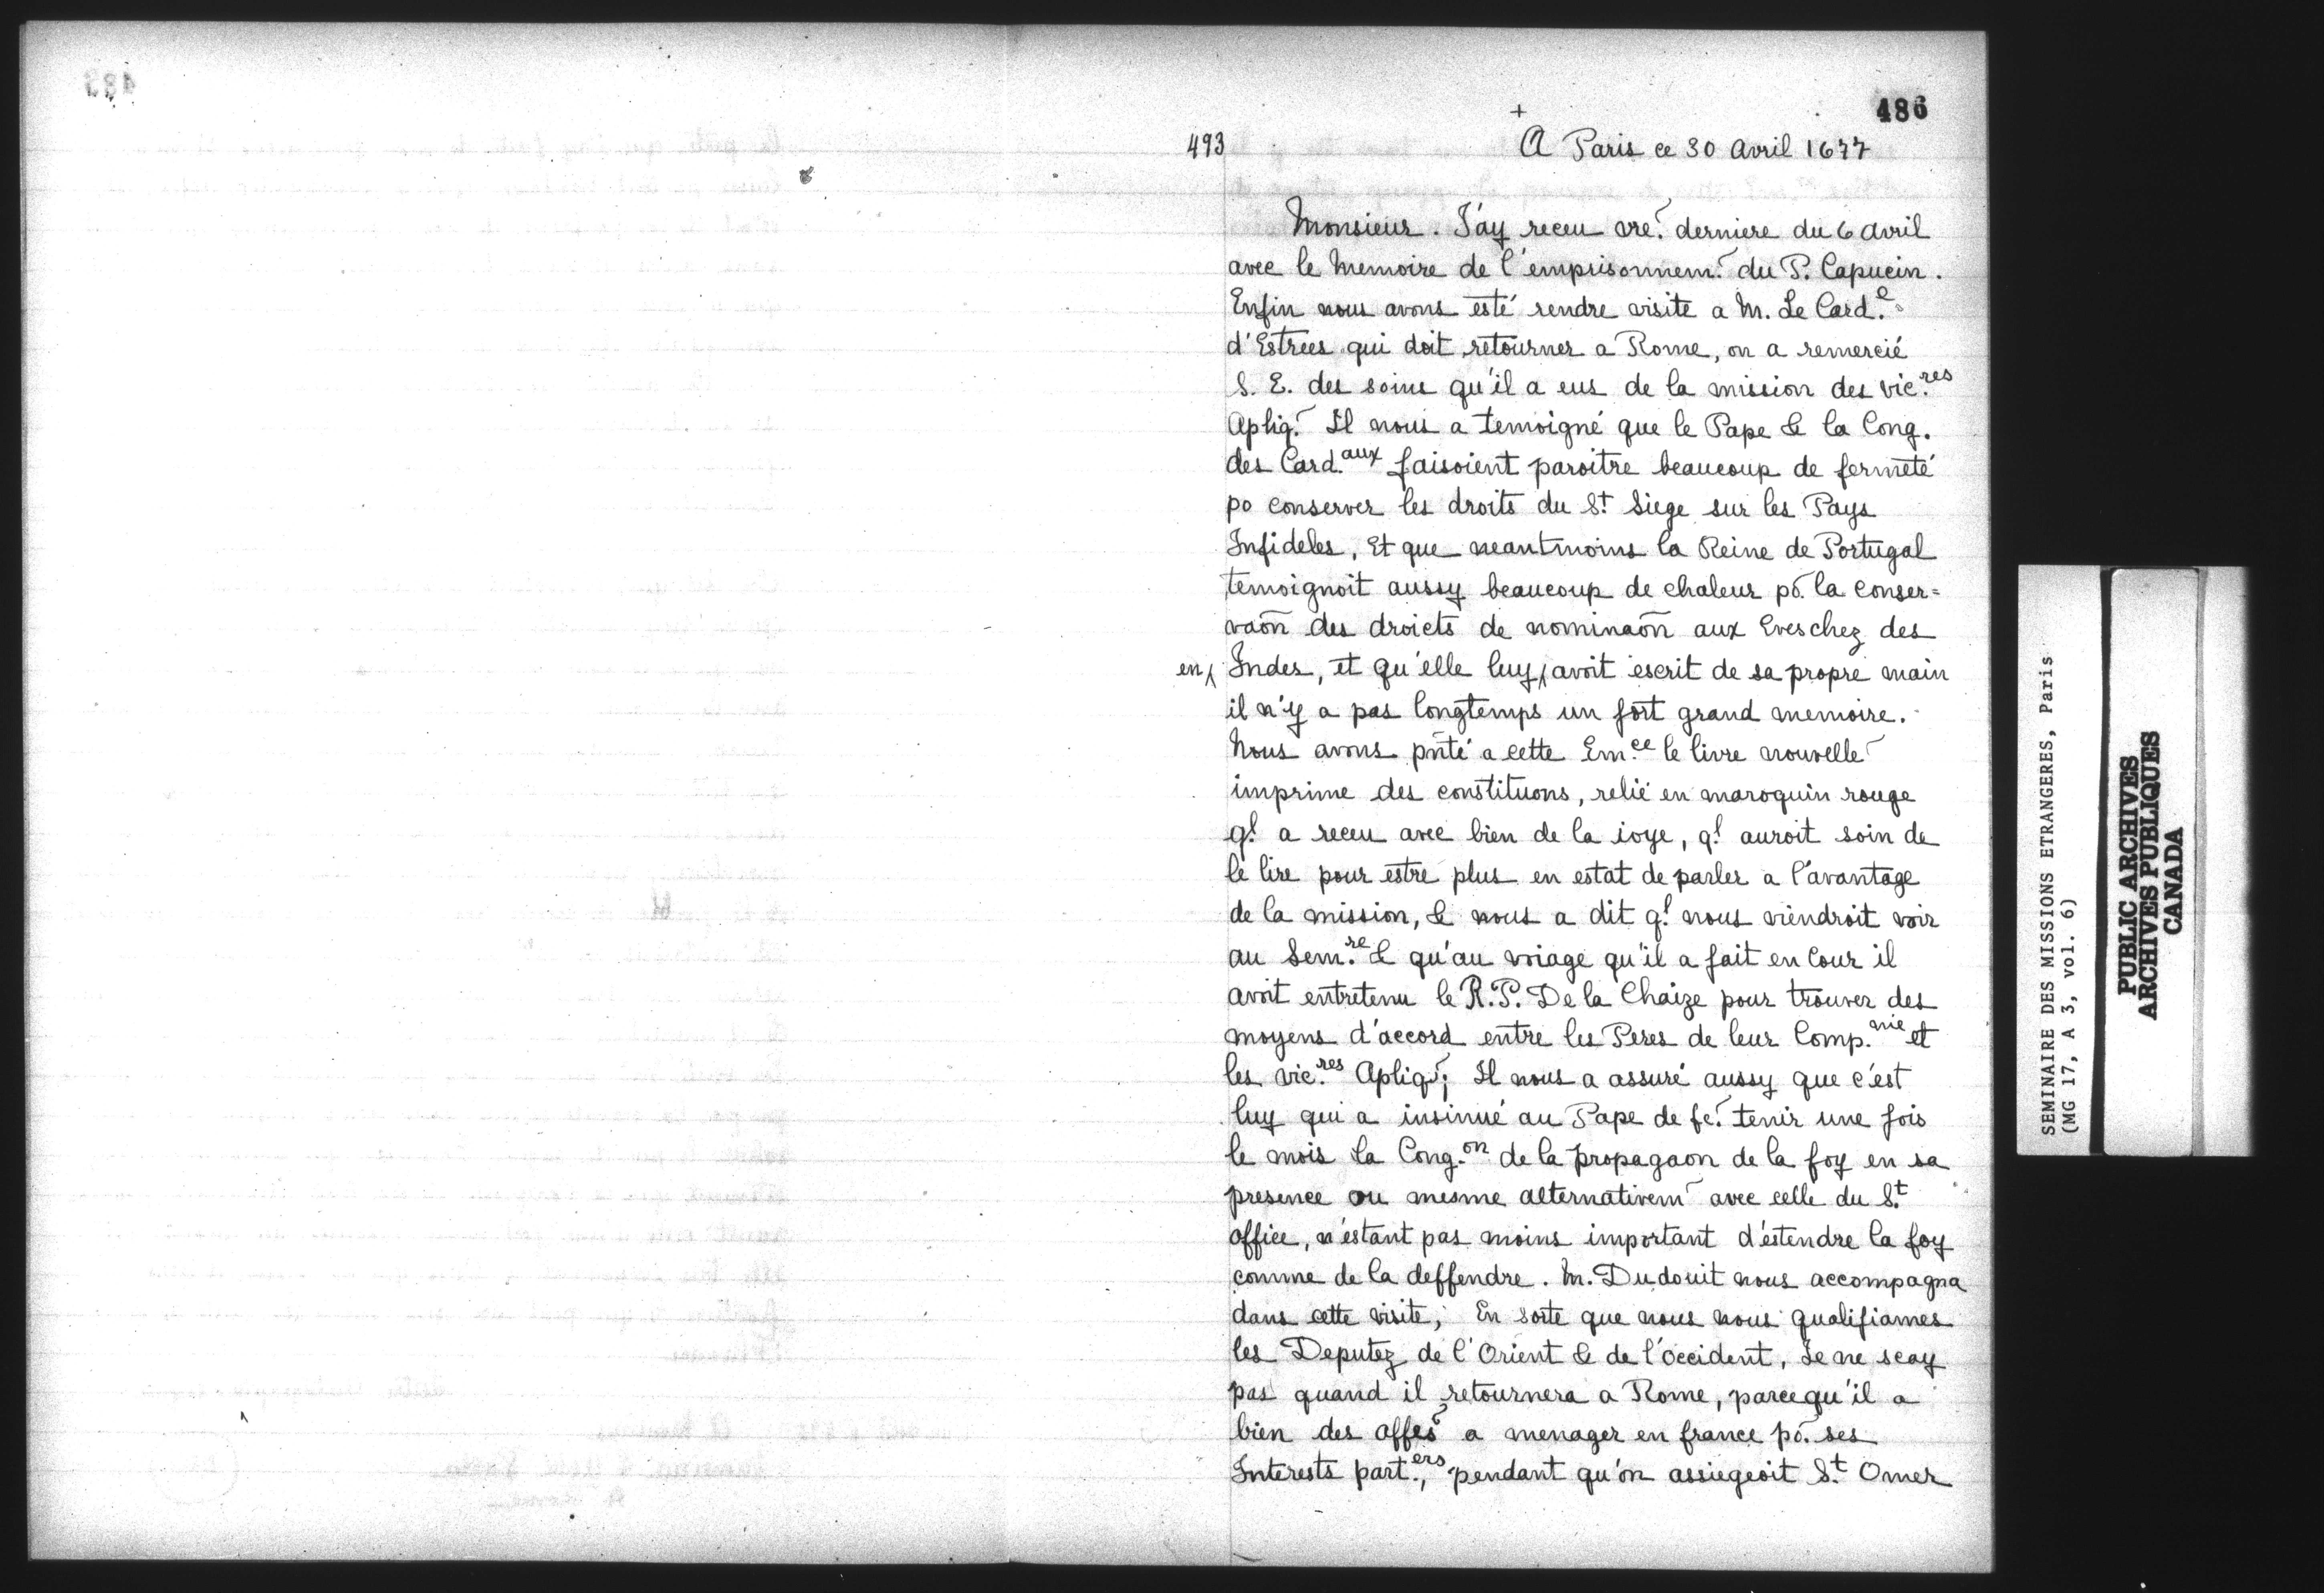 486
+
493 A Paris ce 30 Avril 1677
Monsieur. J'ay receu vre ̃. derniere du 6 avril
avec le Memoire de l'emprisonnem.̃ du P. Capucin.
Enfin nous avons esté rendre visite a M. Le Card.e
d'Estrees qui doit retourner a Rome, on a remercié
S. E. des soins qu'il a eus de la mission des vic.res
Apliq.̃ Il nous a temoigné que le Pape & la Cong.
des Card.aux faisoient paroitre beaucoup de fermeté
po conserver les droits du St Siege sur les Pays
Infideles, Et que neantmoins la Reine de Portugal
temoignoit aussy beaucoup de chaleur põ. la conser=
vaõn des droicts de nominaõn aux Eveschez des
en/ Indes, et qu'elle luy / avoit escrit de sa propre main
il n'y a pas longtemps un fort grand memoire.
Nous avons pñté a cette Em.ce le livre nouvelle ̃
imprime des constituons, relié en maroquin rouge
q.l a receu avec bien de la ioye, q.l auroit soin de
le lire pour estre plus en estat de parler a l'avantage
de la mission, & nous a dit q.l nous viendroit voir
au Sem.re & qu'au voiage qu'il a fait en Cour il
avoit entretenu le R.P. De la Chaize pour trouver des
moyens d'accord entre les Peres de leur Comp.nie et
les vic.res Apliq ̃; Il nous a assuré aussy que c'est
luy qui a insinué au Pape de fe.̃ tenir une fois
le mois la Cong.on de la propagaon de la foy en sa
presence ou mesme alternativem ̃ avec celle du S.t
office, n'estant pas moins important d'estendre la foy
comme de la deffendre. M. Dudouit nous accompagna
dans cette visite, En sorte que nous nous qualifiames
les Deputez de l'Orient & de l'Occident, Je ne scay
pas quand il retournera a Rome, parcequ'il a
bien des affes ̃ a menager en france põ. ses
Interests part.ers, pendant qu'on assiegeoit S.t Omer
SEMINAIRE DES MISSIONS ETRANGERES, Paris
(MG 17, A 3, vol. 6)
PUBLIC ARCHIVES
ARCHIVES PUBLIQUES
CANADA